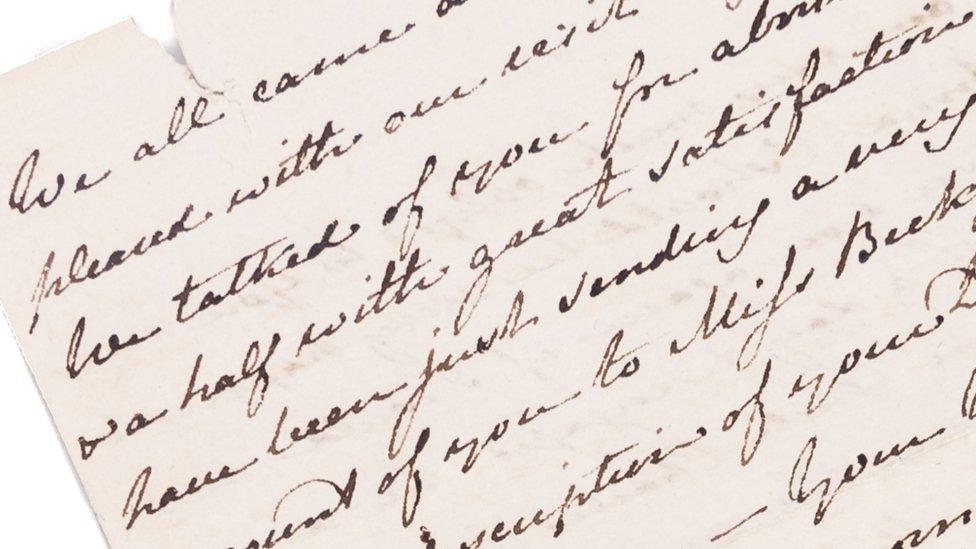 We all came
pleased with our visit
We talked of you for about
& a half with great satisfaction
have been just sending a very
count of you to Miss Beck
scription of your D
— Your